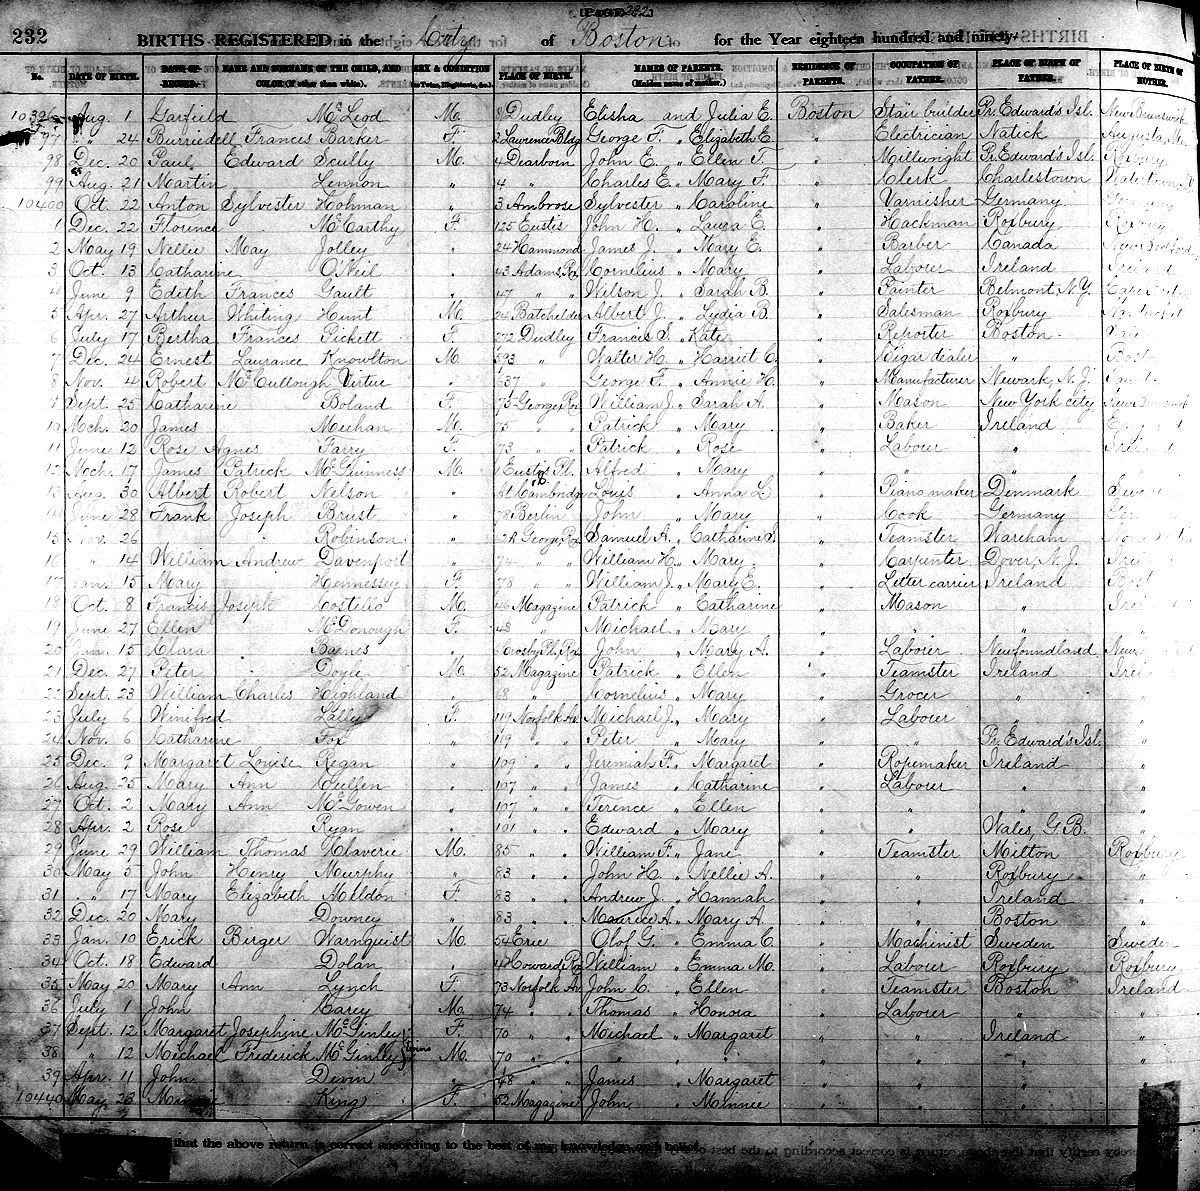 232
BIRTHS REGISTERED in the City of Boston for the Year eighteen hundred and ninety-
No. DATE OF BIRTH. DATE OF RECORD. NAME AND SURNAME OF THE CHILD, AND COLOR (if other than white). SEX & CONDITION PLACE OF BIRTH. NAMES OF PARENTS. (Maiden name of mother.) RESIDENCE OF PARENTS. OCCUPATION OF FATHER. PLACE OF BIRTH OF FATHER. PLACE OF BIRTH OF MOTHER.
10396 Aug. 1 Garfield McLeod M. 8 Dudley Elisha and Julia E. Boston Stair builder Pr. Edward's Isl. New Brunswick
97 " 24 Burriedell Frances Barker F. 2 Lawrence Bldg George F. " Elizabeth E. " Electrician Natick Augusta, Me.
98 Dec. 20 Paul Edward Scully M. 4 Dearborn John E. " Ellen F. " Millwright Pr. Edward's Isl. Roxbury
99 Aug. 21 Martin Lennon " 4 " Charles E. " Mary F. " Clerk Charlestown Watertown
10400 Oct. 22 Anton Sylvester Hohman " 3 Ambrose Sylvester " Caroline " Varnisher Germany Germany
1 Dec. 22 Florence McCarthy F. 125 Eustis John H. " Laura E. " Hackman Roxbury Roxbury
2 May 19 Nellie May Jolley " 24 Hammond James J. " Mary E. " Barber Canada New Bedford
3 Oct. 13 Catharine O'Neil " 43 Adams, Rox. Cornelius " Mary " Laborer Ireland Ireland
4 June 9 Edith Frances Gault " 47 " " Wilson J. " Sarah B. " Painter Belmont, N.Y.
5 Apr. 27 Arthur Whiting Hunt M. 24 Batchelder Albert J. " Lydia B. " Salesman Roxbury Nantucket
6 July 17 Bertha Frances Pickett F. 272 Dudley Francis S. " Kate " Reporter Boston
7 Dec. 24 Ernest Laurance Knowlton M. 593 " Walter H. " Harriet C. " Cigar dealer "
8 Nov. 4 Robert McCullough Virtue " 637 " George F. " Annie H. " Manufacturer Newark, N.J.
9 Sept. 25 Catharine Boland F. 75 George, Rox. William J. " Sarah A. " Mason New York city
10 Mch. 20 James Meehan M. 75 " " Patrick " Mary " Baker Ireland
11 June 12 Rose Agnes Farry F. 73 " " Patrick " Rose " Laborer "
12 Mch. 17 James Patrick McGuinness M. Eustis Pl. Alfred " Mary " " "
13 Aug. 30 Albert Robert Nelson " At Cambridge Louis " Anna L. " Piano maker Denmark
14 June 28 Frank Joseph Brust " 78 Berlin John " Mary " Cook Germany
15 Nov. 26 Robinson " George, Rox. Samuel A. " Catharine S. " Teamster Wareham
16 " 14 William Andrew Davenport " 74 " " William H. " Mary " Carpenter Dover, N.J.
17 Jan. 15 Mary Hennessey F. 78 " " William J. " Mary E. " Letter carrier Ireland
18 Oct. 8 Francis Joseph Costello M. 46 Magazine Patrick " Catharine " Mason "
19 June 27 Ellen McDonough F. 48 " Michael " Mary " " "
20 Jan. 15 Clara Barnes " 6 Crosby Pl., Rox. John " Mary A. " Laborer Newfoundland
21 Dec. 27 Peter Doyle M. 52 Magazine Patrick " Ellen " Teamster Ireland
22 Sept. 23 William Charles Highland " 68 " Cornelius " Mary " Grocer "
23 July 6 Winifred Lally F. 119 Norfolk Av. Michael J. " Mary " Laborer "
24 Nov. 6 Catharine Fox " 119 " " Peter " Mary " " Pr. Edward's Isl. "
25 Dec. 9 Margaret Louise Regan " 109 " " Jeremiah F. " Margaret " Ropemaker Ireland "
26 Aug. 25 Mary Ann Cullen " 107 " " James " Catharine " Laborer " "
27 Oct. 2 Mary Ann McGowen " 107 " " Terence " Ellen " " " "
28 Apr. 2 Rose Ryan " 101 " " Edward " Mary " " Wales, G.B. "
29 June 29 William Thomas Claverie M. 85 " " William F. " Jane " Teamster Milton Roxbury
30 May 5 John Henry Murphy " 83 " " John H. " Nellie A. " " Roxbury "
31 " 17 Mary Elizabeth Meldon F. 83 " " Andrew J. " Hannah " " Ireland "
32 Dec. 20 Mary Downey " 83 " " Maurice A. " Mary A. " " Boston "
33 Jan. 10 Erick Birger Warnquist M. 54 Erie Olof G. " Emma C. " Machinist Sweden Sweden
34 Oct. 18 Edward Dolan " Howard, Rox. William " Emma M. " Laborer Roxbury Roxbury
35 May 20 Mary Ann Lynch F. 73 Norfolk Av. John C. " Ellen " Teamster Boston Ireland
36 July 1 John Carey M. 74 " " Thomas " Honora " Laborer " "
37 Sept. 12 Margaret Josephine McGinley } twins F. 70 " " Michael " Margaret " " Ireland "
38 " 12 Michael Frederick McGinley } M. 70 " " " " " " " " "
39 Apr. 11 John Devin " 48 " " James " Margaret " " " "
10440 May 23 Minnie King F. 52 Magazine John " Minnie " " " "
that the above return is correct according to the best of my knowledge and belief.